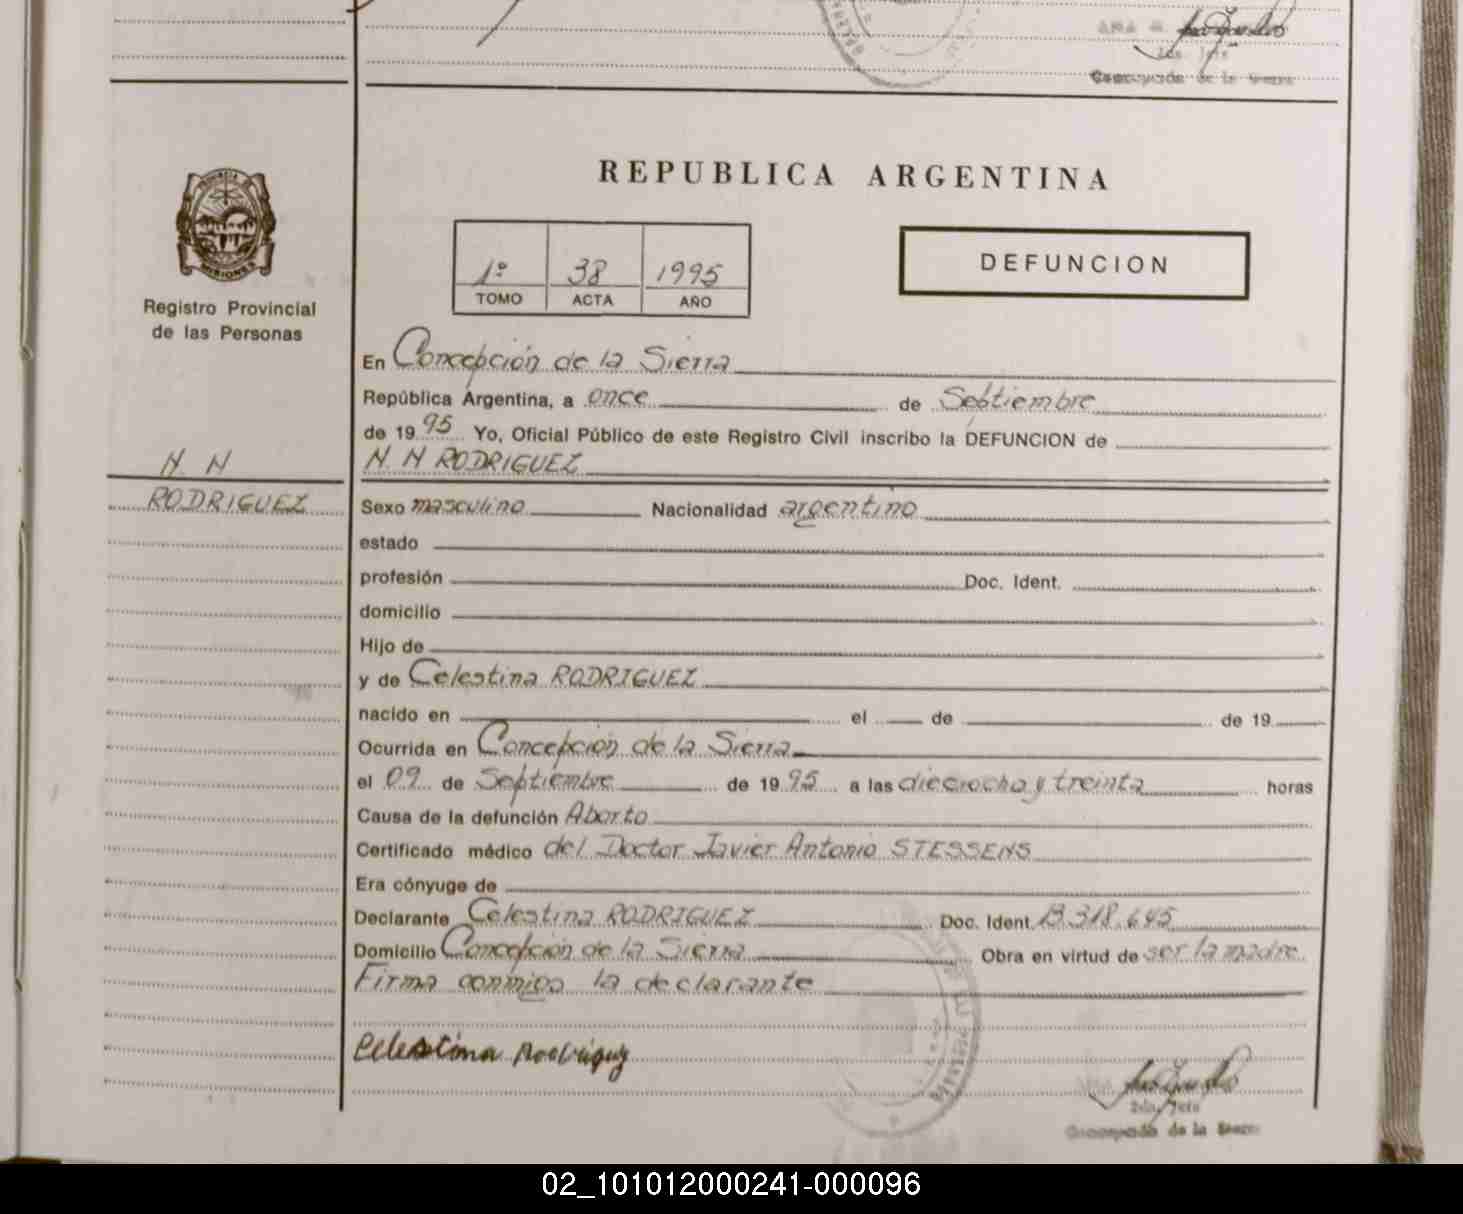 Concepción de la Sierra
REPUBLICA ARGENTINA
1º 38 1995
TOMO ACTA AÑO
DEFUNCION
MISIONES
Registro Provincial
de las Personas
N. N
RODRIGUEZ
En Concepción de la Sierra
República Argentina, a once de Septiembre
de 1995 Yo, Oficial Público de este Registro Civil inscribo la DEFUNCION de
N. N RODRIGUEZ
Sexo masculino Nacionalidad argentino
estado
profesión Doc. Ident.
domicilio
Hijo de
y de Celestina RODRIGUEZ
nacido en el de de 19
Ocurrida en Concepción de la Sierra
el 09 de Septiembre de 1995 a las dieciocho y treinta horas
Causa de la defunción Aborto
Certificado médico del Doctor Javier Antonio STESSENS
Era cónyuge de
Declarante Celestina RODRIGUEZ Doc. Ident. 13.318.645
Domicilio Concepción de la Sierra Obra en virtud de ser la madre
Firma conmigo la declarante
Celestina Rodriguez
Concepción de la Sierra
02_101012000241-000096